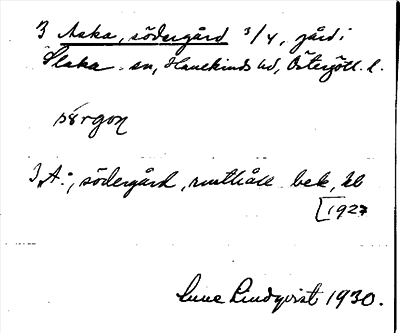 3 Aska, södergård 3/4, gård i
Slaka sn, Hanekinds hd, Östergötl. l.
sørgon
3 A:, södergård, rusthåll bek, hb
[1927
Sune Lindqvist 1930.